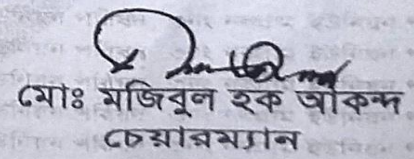 মোঃ মজিবুল হক আকন্দ
চেয়ারম্যান